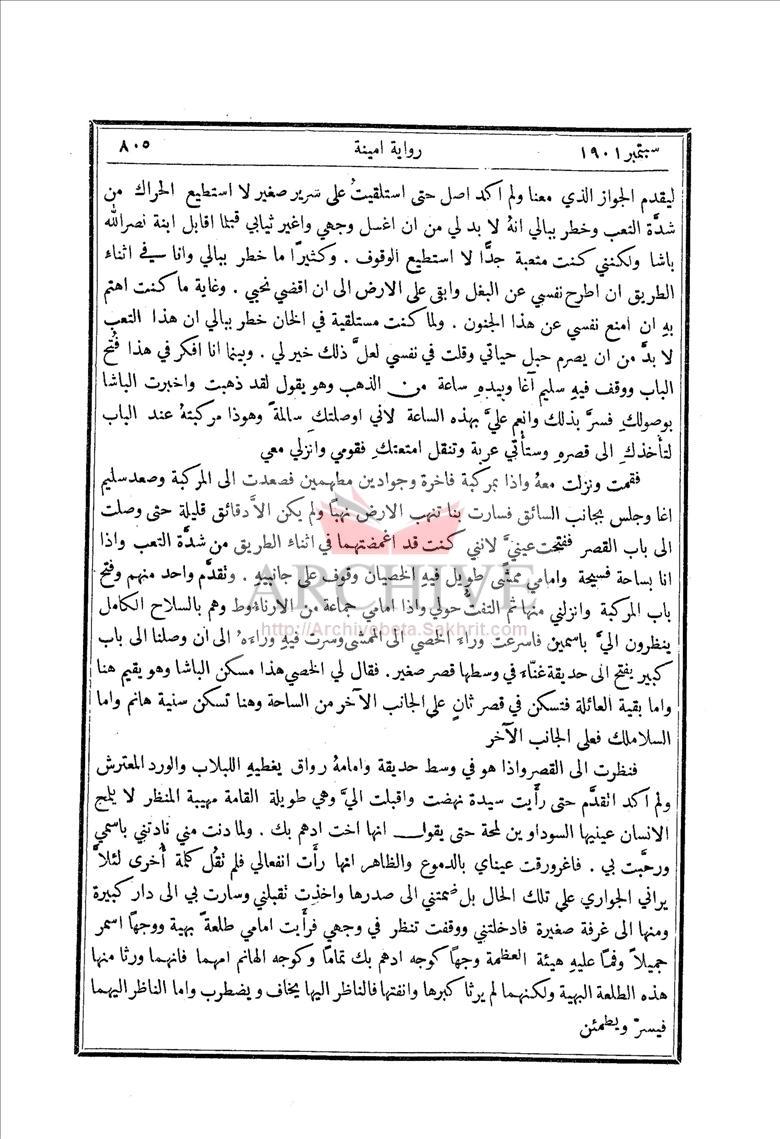 سبتمبر ١٩٠١ رواية امينة ٨٠٥
ليقدم الجواز الذي معنا ولم اكد اصل حتى استلقيتُ على سرير صغير لا استطيع الحراك من
شدَّة التعب وخطر ببالي انهُ لا بد لي من ان اغسل وجهي واغير ثيابي قبلما اقابل ابنة نصرالله
باشا ولكنني كنت متعبة جدًّا لا استطيع الوقوف . وكثيرًا ما خطر ببالي وانا في اثناء
الطريق ان اطرح نفسي عن البغل وابقى على الارض الى ان اقضي نحبي . وغاية ما كنت اهتم
بهِ ان امنع نفسي عن هذا الجنون . ولما كنت مستلقية في الخان خطر ببالي ان هذا التعب
لا بدَّ من ان يصرم حبل حياتي وقلت في نفسي لعلَّ ذلك خير لي . وبينما انا افكر في هذا فُتح
الباب ووقف فيهِ سليم آغا وبيدهِ ساعة من الذهب وهو يقول لقد ذهبت واخبرت الباشا
بوصولكِ فسرَّ بذلك وانعم عليَّ بهذه الساعة لاني اوصلتكِ سالمةً وهوذا مركبتهُ عند الباب
لتأخذكِ الى قصرهِ وستأتي عربة وتنقل امتعتكِ فقومي وانزلي معي
فقمت ونزلت معهُ واذا بمركبة فاخرة وجوادين مطهمين فصعدت الى المركبة وصعد سليم
اغا وجلس بجانب السائق فسارت بنا تنهب الارض نهبًا ولم يكن الاَّ دقائق قليلة حتى وصلت
الى باب القصر ففتحت عينيَّ لانني كنت قد اغمضتهما في اثناء الطريق من شدَّة التعب واذا
انا بساحة فسيحة وامامي ممشًى طويل فيهِ الخصيان وقوف على جانبيهِ . وتقدَّم واحد منهم وفتح
باب المركبة وانزلني منها ثم التفتُّ حولي واذا امامي جماعة من الارناءوط وهم بالسلاح الكامل
ينظرون اليَّ باسمين فاسرعت وراءَ الخصي الى الممشى وسرت فيهِ وراءهُ الى ان وصلنا الى باب
كبير يفتح الى حديقة غنَّاء في وسطها قصر صغير. فقال لي الخصي هذا مسكن الباشا وهو يقيم هنا
واما بقية العائلة فتسكن في قصر ثانٍ على الجانب الآخر من الساحة وهنا تسكن سنية هانم واما
السلاملك فعلى الجانب الآخر
فنظرت الى القصر واذا هو في وسط حديقة وامامهُ رواق يغطيهِ اللبلاب والورد المعترش
ولم اكد اتقدَّم حتى رأَيت سيدة نهضت واقبلت اليَّ وهي طويلة القامة مهيبة المنظر لا يلمح
الانسان عينيها السوداوين لمحة حتى يقول انها اخت ادهم بك . ولما دنت مني نادتني باسمي
ورحَّبت بي . فاغرورقت عيناي بالدموع والظاهر انها رأَت انفعالي فلم تقُل كلمة أُخرى لئلاَّ
يراني الجواري على تلك الحال بل ضمتني الى صدرها واخذت تقبلني وسارت بي الى دار كبيرة
ومنها الى غرفة صغيرة فادخلتني ووقفت تنظر في وجهي فرأَيت امامي طلعةً بهية ووجهًا اسمر
جميلاً وفمًا عليهِ هيئة العظمة وجهًا كوجه ادهم بك تمامًا وكوجه الهانم امهما فانهما ورثا منها
هذه الطلعة البهية ولكنهما لم يرثا كبرها وانفتها فالناظر اليها يخاف ويضطرب واما الناظر اليهما
فيسرّ ويطمئن
ARCHIVE
http://Archivebeta.Sakhrit.com